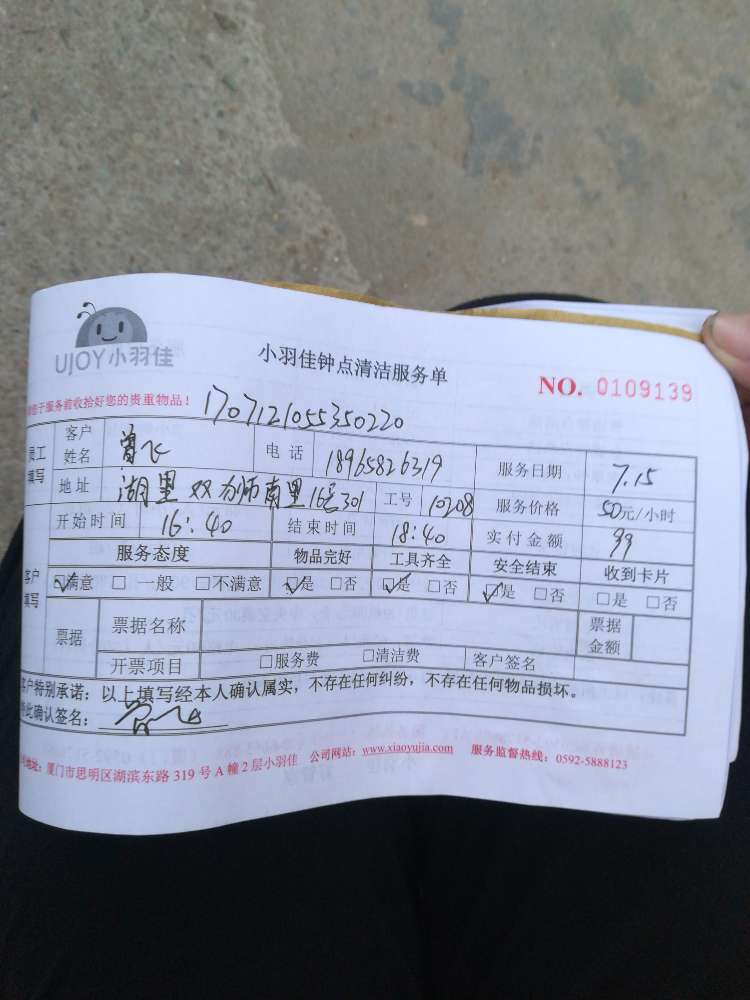 UJOY小羽佳
小羽佳钟点清洁服务单
NO. 0109139
于服务前收拾好您的贵重物品！
1707121055350220
员工填写 客户姓名 曾飞 电话 18965826319 服务日期 7.15
地址 湖里 南里16号301 工号 10208 服务价格 50元/小时
开始时间 16:40 结束时间 18:40 实付金额 99
服务态度 物品完好 工具齐全 安全结束 收到卡片
客户填写 ☑满意 □ 一般 □不满意 ☑是 □否 ☑是 □否 ☑是 □否 □是 □否
票据 票据名称 票据金额
开票项目 □服务费 □清洁费 客户签名
客户特别承诺：以上填写经本人确认属实，不存在任何纠纷，不存在任何物品损坏。
此确认签名： 曾飞
地址：厦门市思明区湖滨东路 319 号 A 幢 2 层小羽佳 公司网站：www.xiaoyujia.com 服务监督热线：0592-5888123